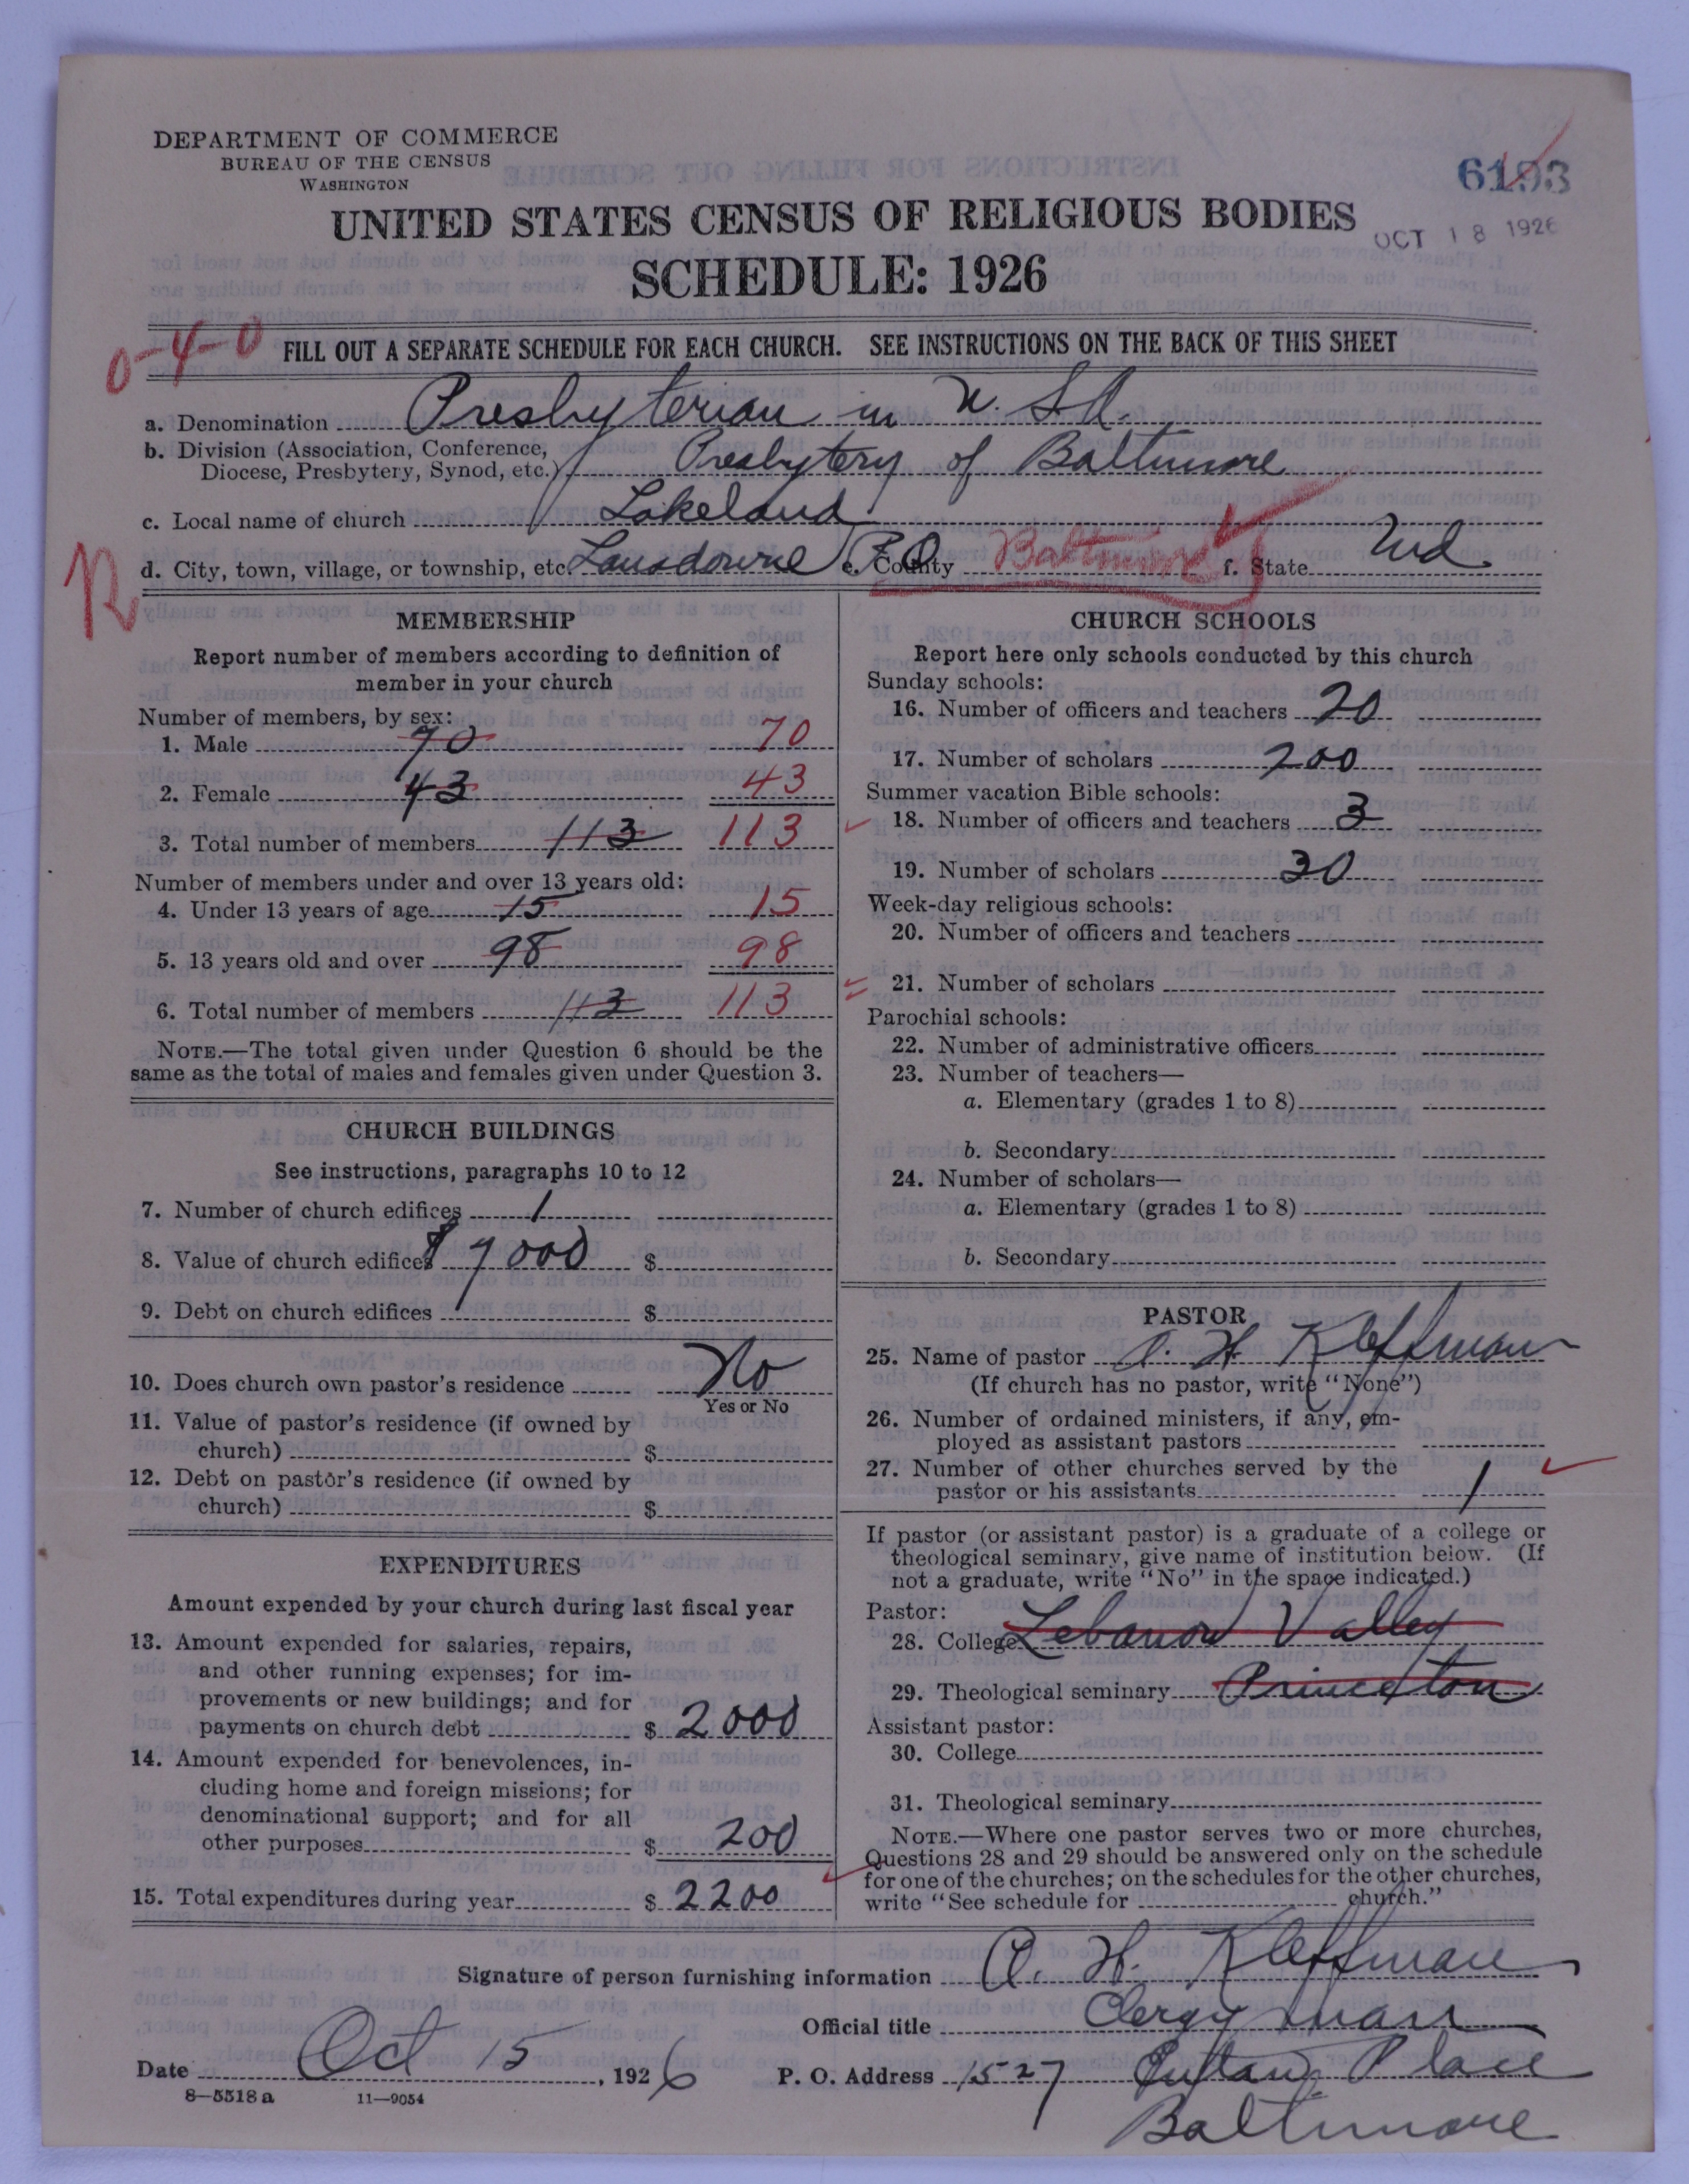 DEPARTMENT OF COMMERCE
BUREAU OF THE CENSUS
WASHINGTON
6193
UNITED STATES CENSUS OF RELIGIOUS BODIES
OCT 18 1926
SCHEDULE: 1926
0-4-0
FILL OUT A SEPARATE SCHEDULE FOR EACH CHURCH. SEE INSTRUCTIONS ON THE BACK OF THIS SHEET
a. Denomination Presbyterian in U.S.A.
b. Division (Association, Conference,
Diocese, Presbytery, Synod, etc.) Presbytery of Baltimore
c. Local name of church Lakeland
R
d. City, town, village, or township, etc. Lansdowne P.O. e. County Baltimore f. State Md
MEMBERSHIP
Report number of members according to definition of
member in your church
Number of members, by sex:
1. Male 70 70
2. Female 43 43
3. Total number of members 113 113
Number of members under and over 13 years old:
4. Under 13 years of age 15 15
5. 13 years old and over 98 98
6. Total number of members 113 113
NOTE.—The total given under Question 6 should be the
same as the total of males and females given under Question 3.
CHURCH BUILDINGS
See instructions, paragraphs 10 to 12
7. Number of church edifices 1
8. Value of church edifices $7000 $
9. Debt on church edifices $
10. Does church own pastor's residence No
Yes or No
11. Value of pastor's residence (if owned by
church) $
12. Debt on pastor's residence (if owned by
church) $
EXPENDITURES
Amount expended by your church during last fiscal year
13. Amount expended for salaries, repairs,
and other running expenses; for im-
provements or new buildings; and for
payments on church debt $ 2000
14. Amount expended for benevolences, in-
cluding home and foreign missions; for
denominational support; and for all
other purposes $ 200
15. Total expenditures during year $ 2200
CHURCH SCHOOLS
Report here only schools conducted by this church
Sunday schools:
16. Number of officers and teachers 20
17. Number of scholars 200
Summer vacation Bible schools:
18. Number of officers and teachers 3
19. Number of scholars 30
Week-day religious schools:
20. Number of officers and teachers
21. Number of scholars
Parochial schools:
22. Number of administrative officers
23. Number of teachers—
a. Elementary (grades 1 to 8)
b. Secondary
24. Number of scholars—
a. Elementary (grades 1 to 8)
b. Secondary
PASTOR
25. Name of pastor A. H. Kleffman
(If church has no pastor, write "None")
26. Number of ordained ministers, if any, em-
ployed as assistant pastors
27. Number of other churches served by the
pastor or his assistants 1
If pastor (or assistant pastor) is a graduate of a college or
theological seminary, give name of institution below. (If
not a graduate, write "No" in the space indicated.)
Pastor:
28. College Lebanon Valley
29. Theological seminary Princeton
Assistant pastor:
30. College
31. Theological seminary
NOTE.—Where one pastor serves two or more churches,
Questions 28 and 29 should be answered only on the schedule
for one of the churches; on the schedules for the other churches,
write "See schedule for church."
Signature of person furnishing information A. H. Kleffman
Official title Clergyman
Date Oct 15, 1926 P. O. Address 1527 Eutaw Place
Baltimore
8—5518a 11—9054